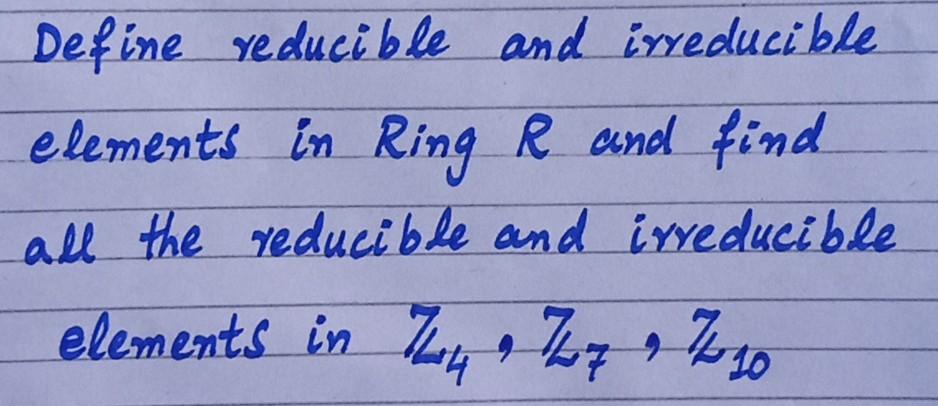 Define reducible and irreducible
elements in Ring R and find
all the reducible and irreducible
elements in ℤ₄, ℤ₇, ℤ₁₀